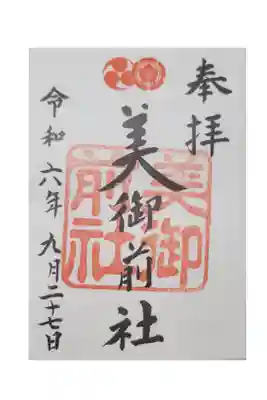 奉拝
美御前社
美御前社
令和六年九月二十七日